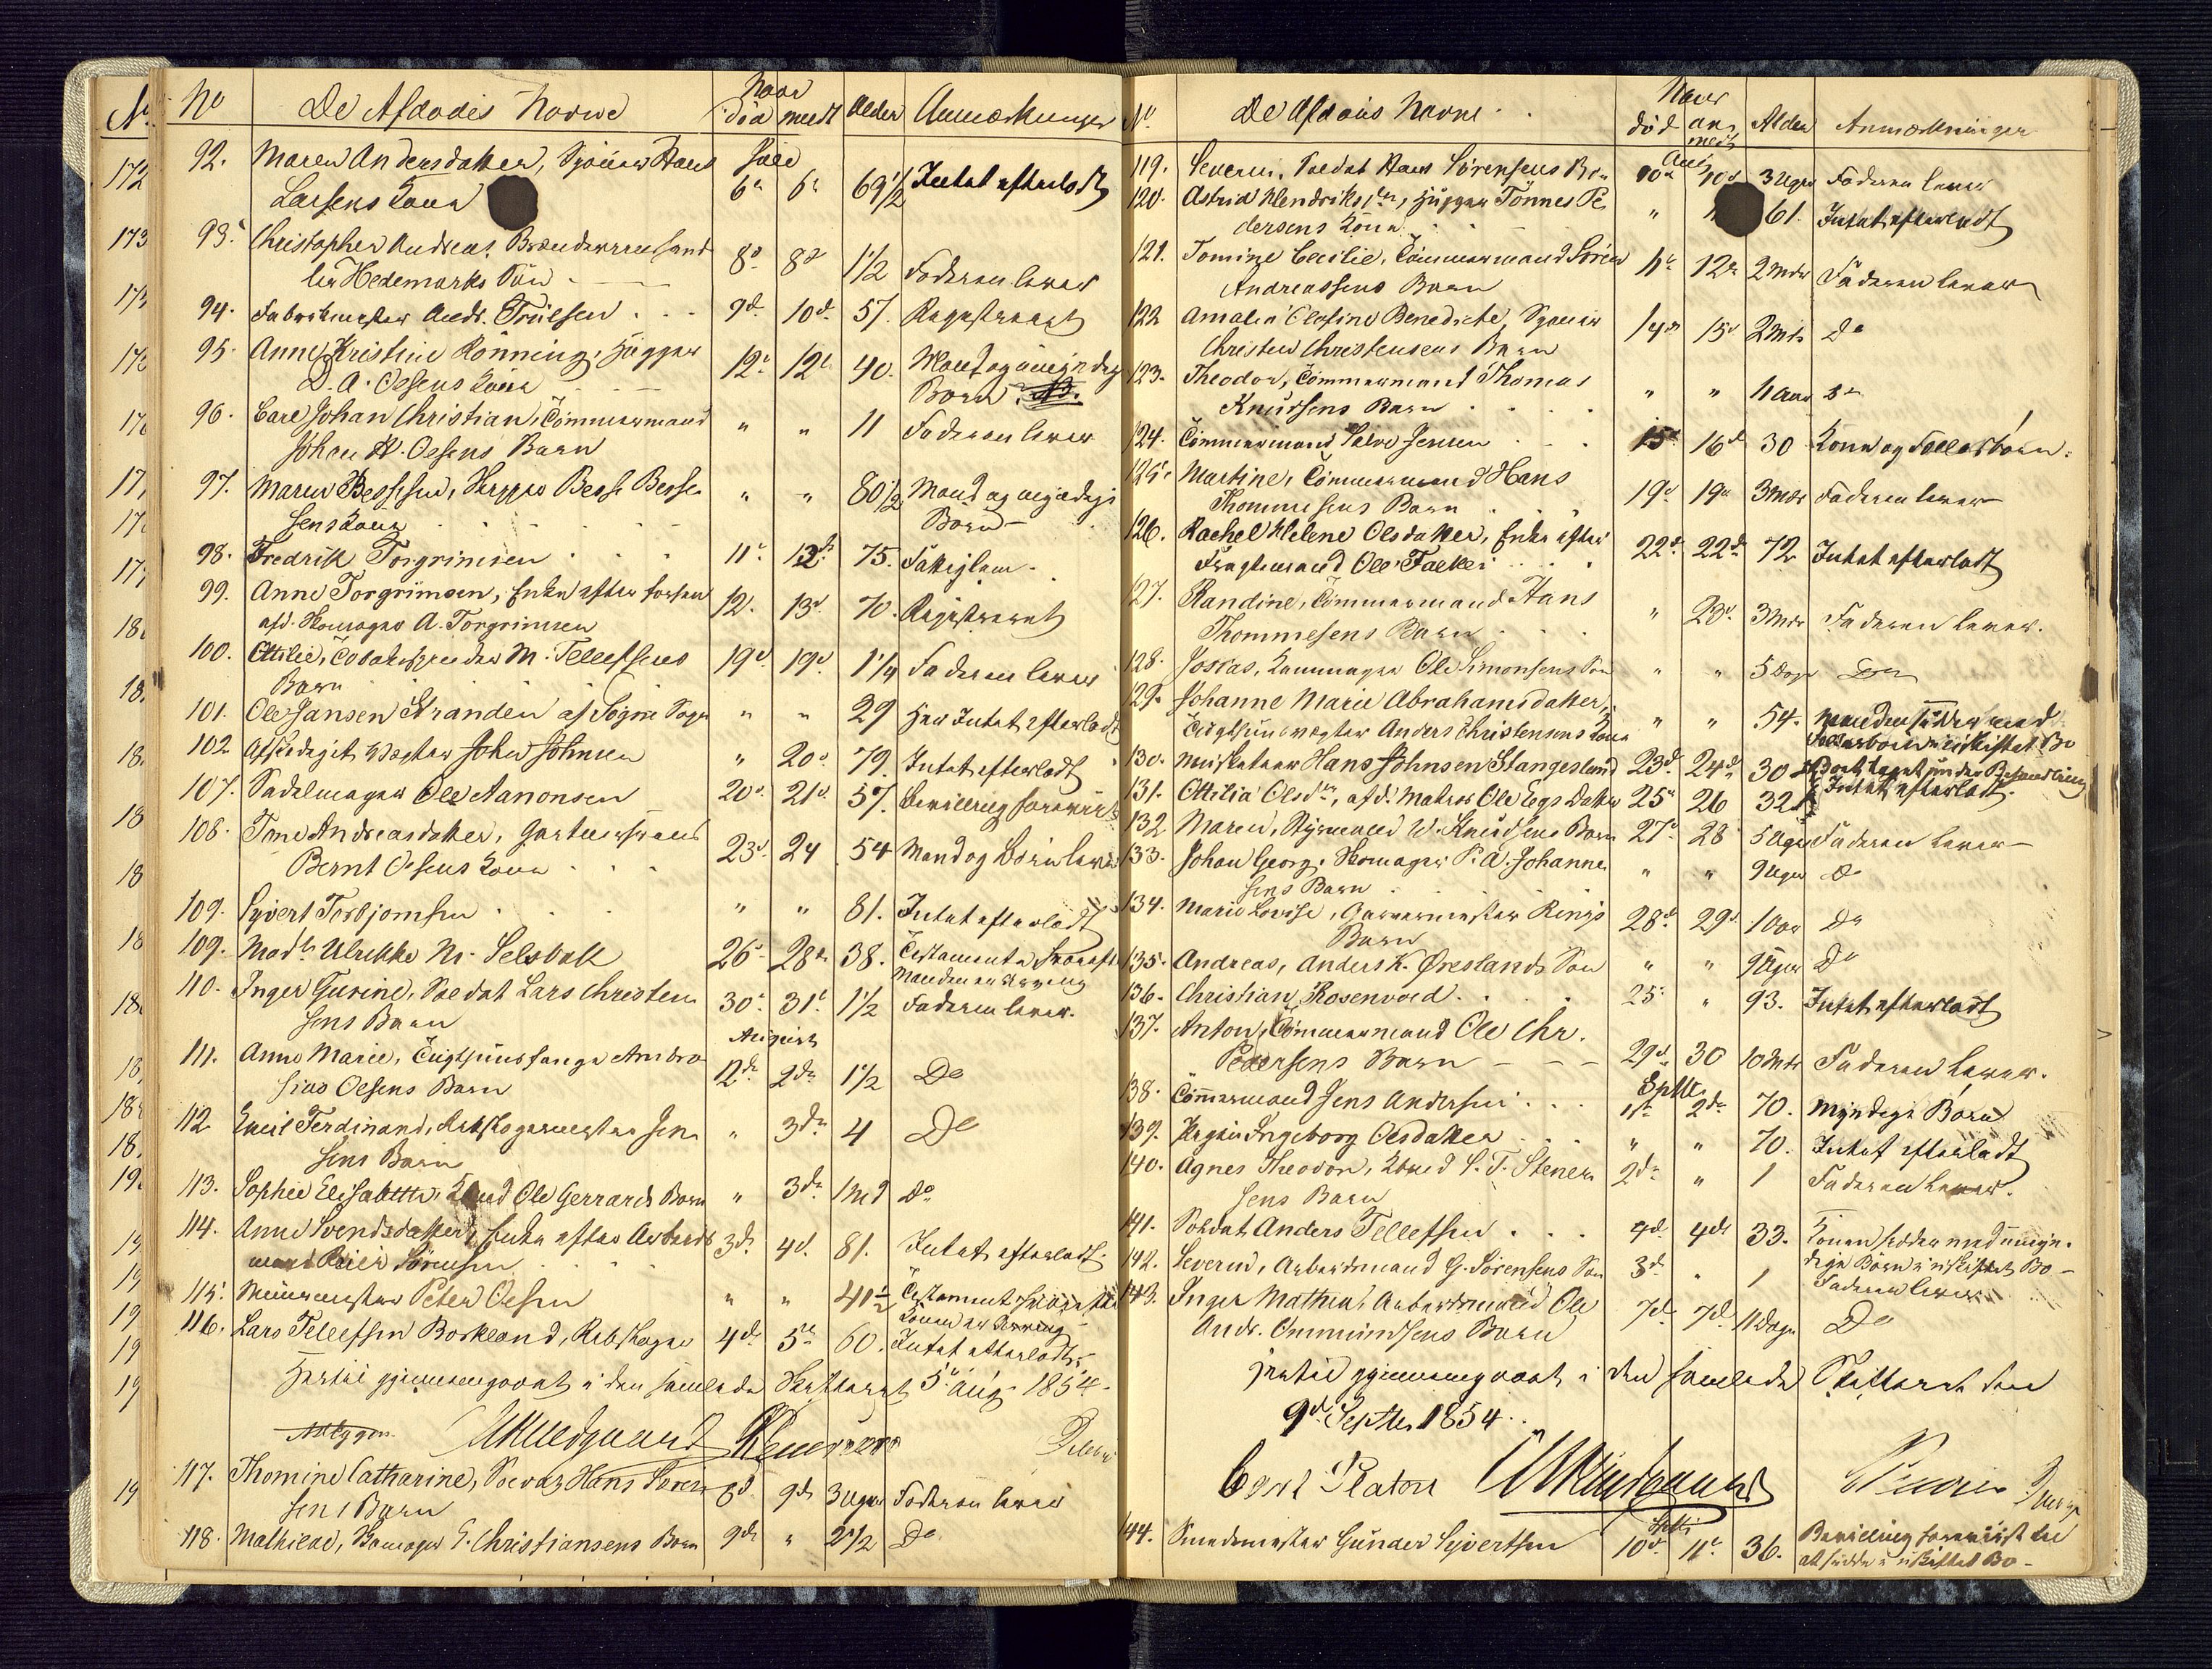 No De Afdødes Navne Naar død meldt Alder Anmærkninger
92. Maren Andersdatter, Sjømand Hans Juli
Larsens Kone 6te 6te 69 1/2 Intet efterladt
93. Christopher Andreas, Brændeviinshand
ler Hedemarks Søn 8de 8de 1 1/2 Faderen lever
94. Fabrikmester Andr. Truelsen 9de 10de 57 Registreret
95. Anne Kristine Rønning, Hugger
D. A. Olsens Kone 12te 12te 40. Mand og umyndige
Børn
96. Carl Johan Christian, Tømmermand
Johan H. Olsens Barn " " 11 Faderen lever
97. Maren Bessesen, Besse Besse
sens Kone " " 80 1/2 Mand og myndige
Børn
98. Fredrik Torgrimsen 11te 13de 75. Fattiglem
99. Anne Torgrimsen, Enke efter forhen
afd. Skomager A. Torgrimsen 12. 13de 70. Registreret
100. Ottilie, Tobaksspinder M. Tellefsens
Barn 19de 19de 1 1/4 Faderen lever
101. Ole Jansen Stranden af Søgne Sogn " " 29 Her Intet efterladt
102 Afskediget Vægter John Johnsen " 20de 79. Intet efterladt
107. Sadelmager Ole Aanonsen 20de 21de 57. Bevilling foreviist
108. Tone Andreasdatter, Gartnersvend
Bernt Olsens Kone 23de 24 54 Mand og Børn lever
109. Syvert Torbjørnsen " " 81. Intet efterladt
109. Mads Ulrikke M. Selsbak 26de 28de 38. Testamente
Manden er Arving
110. Inger Gurine, Soldat Lars Christen
sens Barn 30te 31te 1 1/2 Faderen lever.
August
111. Anne Marie, Tugthuusfange Ambro
sius Olsens Barn 2den 2den 1 1/2 Do
112 Emil Ferdinand, Rebslagermester Jen
sens Barn " 3die 4 Do
113. Sophie Elisabeth, Ole Gerrards Barn " 3die 1 Md Do
114. Anne Svendsdatter, Enke efter Arbeids
mand Sørensen 3die 4de 81. Intet efterladt.
115. Muurmester Peter Olsen " " 41 1/2 Testament
Konen er Arving
116. Lars Tellefsen Borkland, Rebslager 4de 5te 60. Intet efterladt
Hertil gjennemgaaet i den samlede Skifteret 5te Aug. 1854.
117. Thomine Catharine, Soldat Hans Søren
sens Barn 8de 9de 3 Uger Faderen lever
118. Mathilde, Skomager S. Christiansens Barn 9de " 2 1/2 Do
No De Afdødes Navne Naar død anmeldt Alder Anmærkninger
Aug
119. Severin, Soldat Hans Sørensens Barn 10de 10de 3 Uger Faderen lever
120. Astrid Hendriksdtr, Hugger Tønnes Pe
dersens Kone " 61. Intet efterladt
121. Tomine Cecilie, Tømmermand Søren
Andreassens Barn 11te 12te 2 Mdr Faderen lever
122 Amalia Olefine Benedicte, Sjømand
Christen Christensens Barn 14de 15de 2 Mdr Do
123. Theodor, Tømmermand Thomas
Knudsens Barn " " 11 Aar Do
124. Tømmermand Salve Jensen 15de 16de 30 Kone og Fællesbørn.
125. Martine, Tømmermand Hans
Thommesens Barn 19de 19de 3 Mdr Faderen lever
126. Rachel Helene Olsdatter, Enke efter
Fragtemand Ole Falkei 22de 22de 72 Intet efterladt
127. Randine, Tømmermand Hans
Thommesens Barn " 23de 3 Mdr Faderen lever.
128. Josias, Kammager Ole Simonsens Søn " " 5 Dage Do
129. Johanne Marie Abrahamsdatter,
Tugthuusvægter Anders Christensens Kone " " 54. Manden sidder med
Fællesbørn i uskiftet Bo
130. Musketeer Hans Johnsen Stangesland 23de 24de 30 Boet taget under Behandling
131. Ottilia Olsdtr, afd. Matros Ole Egs Datter 25de 26 32 Intet efterladt.
132 Maren, Styrmand W. Knudsens Barn 27de 28 5 Uger Faderen lever
133. Johan Georg, Skomager P. A. Johanne
sens Barn " " 9 Uger Do
134. Marie Lovise, Garvermester Rings
Barn 28de 29de 1 Aar Do
135. Andreas, Anders K. Øreslands Søn " " 9 Uger Do
136. Christian Rosenvold. 25de " 93. Intet efterladt
137. Anton, Tømmermand Ole Chr.
Pedersens Barn 29de 30 10 Mdr Faderen lever.
Septbr
138. Tømmermand Jens Andersen 1ste 2den 70. Myndige Børn
139. Ingeborg Olsdatter " " 70. Intet efterladt
140. Agnes Theodore, S. T. Stener
sens Barn 2den " 1 Faderen lever.
141. Soldat Anders Tellefsen 4de 4de 33. Konen sidder med umyn-
dige Børn i uskiftet Bo
142. Severin, Arbeidsmand G. Sørensens Søn 3die " 1 Faderen lever
143. Inger Mathea, Arbeidsmand Ole
Andr. Ommundsens Barn 7de 7de 11 Dage Do
Hertil gjennemgaaet i den samlede Skifteret den
9de Septbr 1854.
Carl Platou
Septbr
144. Smedemester Gunder Syvertsen 10de 11te 36. Bevilling foreviist til
at sidde i uskiftet Bo